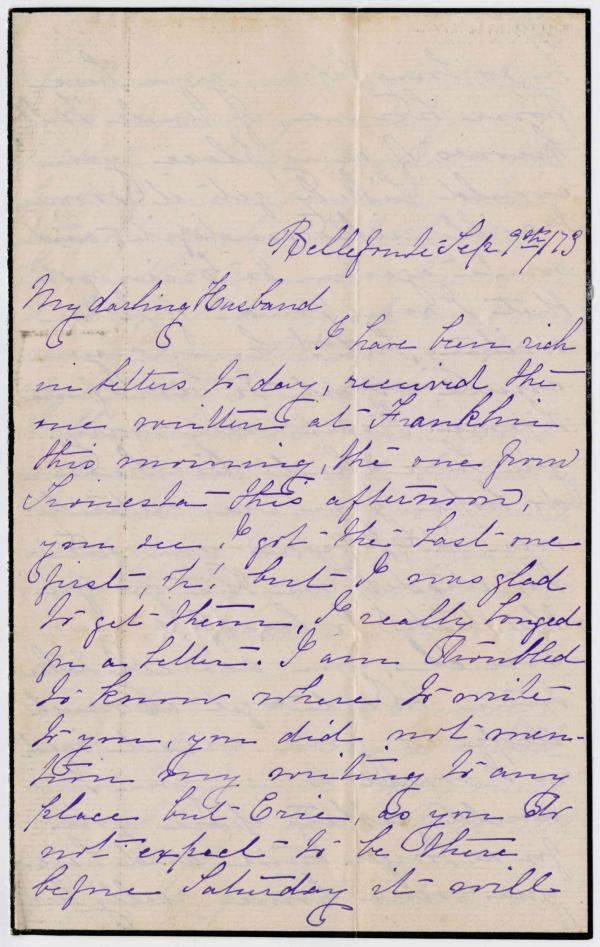 Bellefonte Sep 9th/73
My darling Husband
I have been rich
in letters to day, received the
one written at Franklin
this morning, the one from
Tionesta this afternoon,
you see I got the last one
first, oh! but I was glad
to get them, I really longed
for a letter. I am troubled
to know where to write
to you, you did not men-
tion my writing to any
place but Erie, as you do
not expect to be there
before Saturday it will